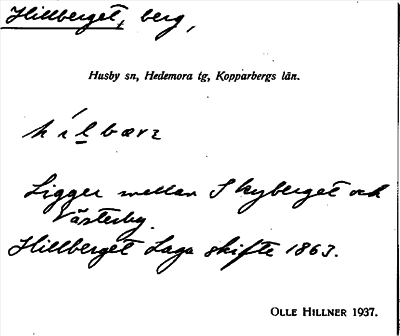 Hillberget, berg,
Husby sn, Hedemora tg, Kopparbergs län.
Ligger mellan Skyberget och
Västerby.
Hillberget Laga skifte 1863.
OLLE HILLNER 1937.